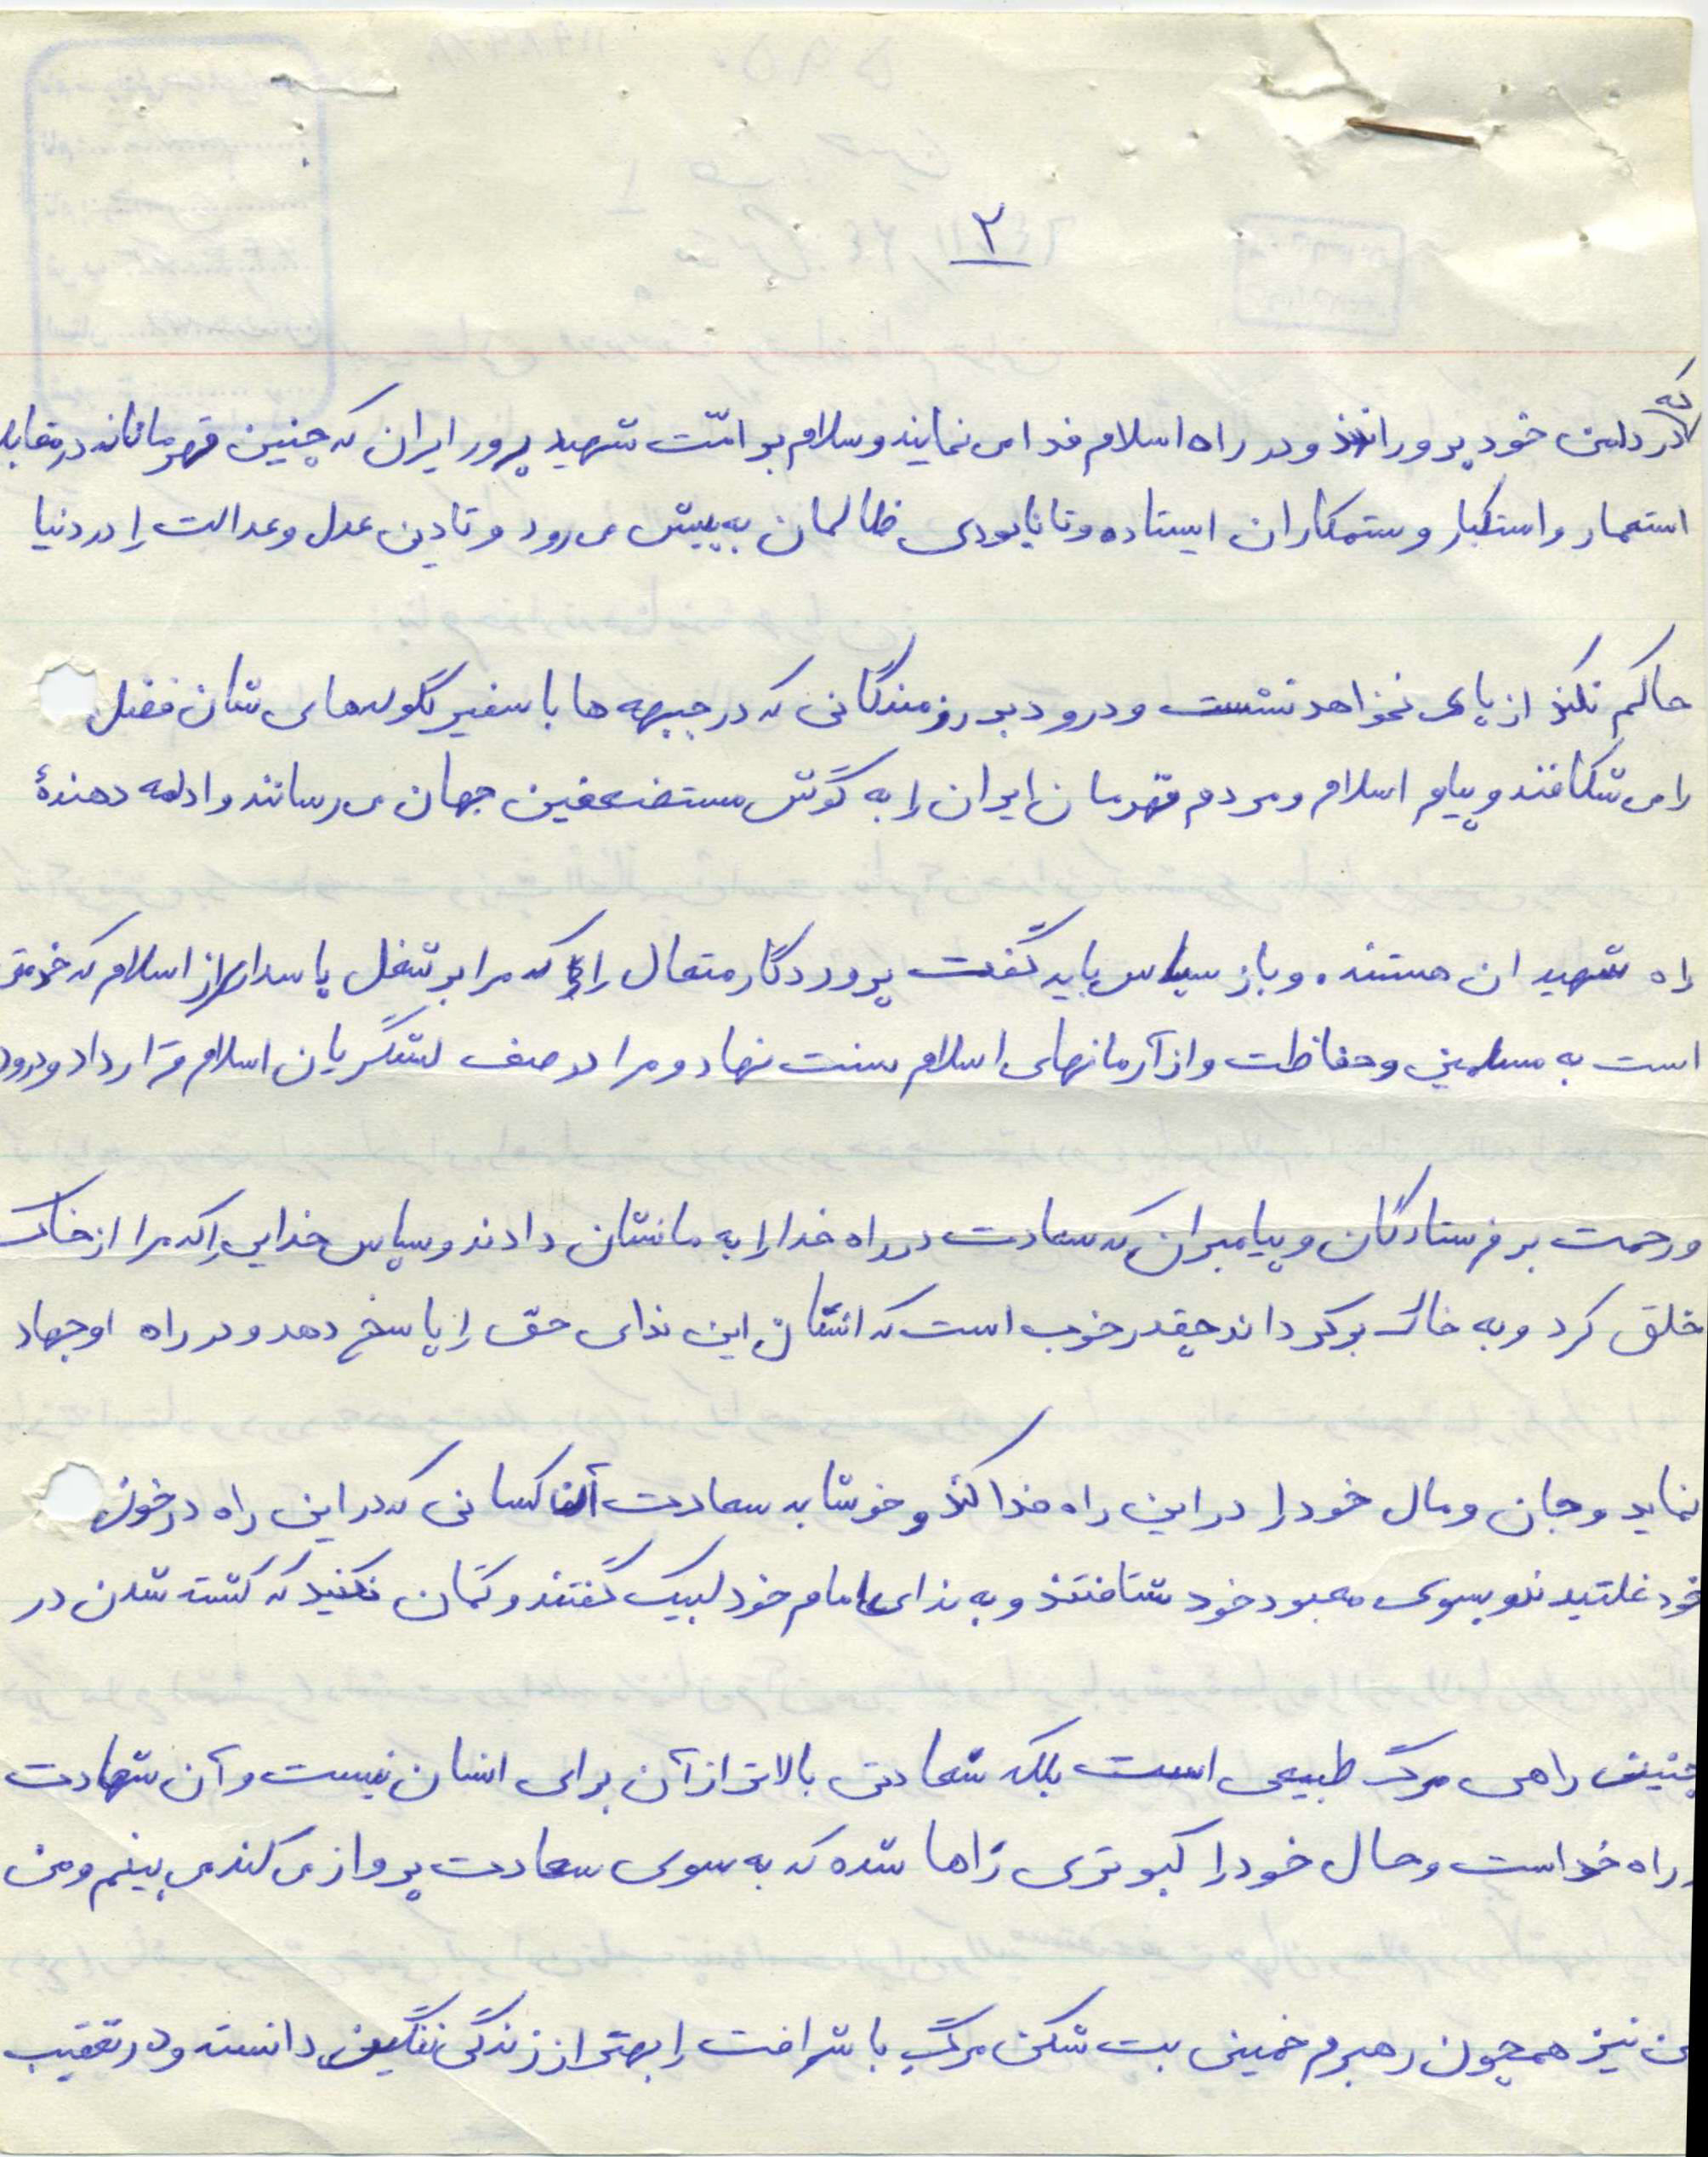 ۲
که در دامن خود پروراندند و در راه اسلام فدا می نمایند و سلام بر امّت شهید پرور ایران که چنین قهرمانانه در مقابل
استعمار و استکبار و ستمکاران ایستاده و تا نابودی ظالمان به پیش می رود و تا دین عدل و عدالت را در دنیا
حاکم نکند از پای نخواهد نشست و درود بر رزمندگانی که در جبهه ها با سفیر گلوله های شان فضل
را می شکافند و پیام اسلام و مردم قهرمان ایران را به گوش مستضعفین جهان می رسانند و ادامه دهندهٔ
راه شهیدان هستند. و باز سپاس باید گفت پروردگار متعال را که مرا بر شغل پاسداری از اسلام که خدمتی
است به مسلمین و حفاظت و از آرمانهای اسلام سنت نهاد و مرا در صف لشگریان اسلام قرار داد و درود
و رحمت بر فرستادگان و پیامبران که سعادت در راه خدا را به ما نشان دادند و سپاس خدایی را که مرا از خاک
خلق کرد و به خاک برگرداند چقدر خوب است که انسان این ندای حق را پاسخ دهد و در راه او جهاد
نماید و جان و مال خود را در این راه فدا کند و خوشا به سعادت کسانی که در این راه در خون
خود غلتیدند و بسوی معبود خود شتافتند و به ندای امام خود لبیک گفتند و گمان نکنید که کشته شدن در
چنین راهی مرگ طبیعی است بلکه سعادتی بالاتر از آن برای انسان نیست و آن شهادت
در راه خداست و حال خود را کبوتری رها شده که به سوی سعادت پرواز می کند می بینم و من
من نیز همچون رهبرم خمینی بت شکن مرگ با شرافت را بهتر از زندگی ننگین دانسته و در تعقیب